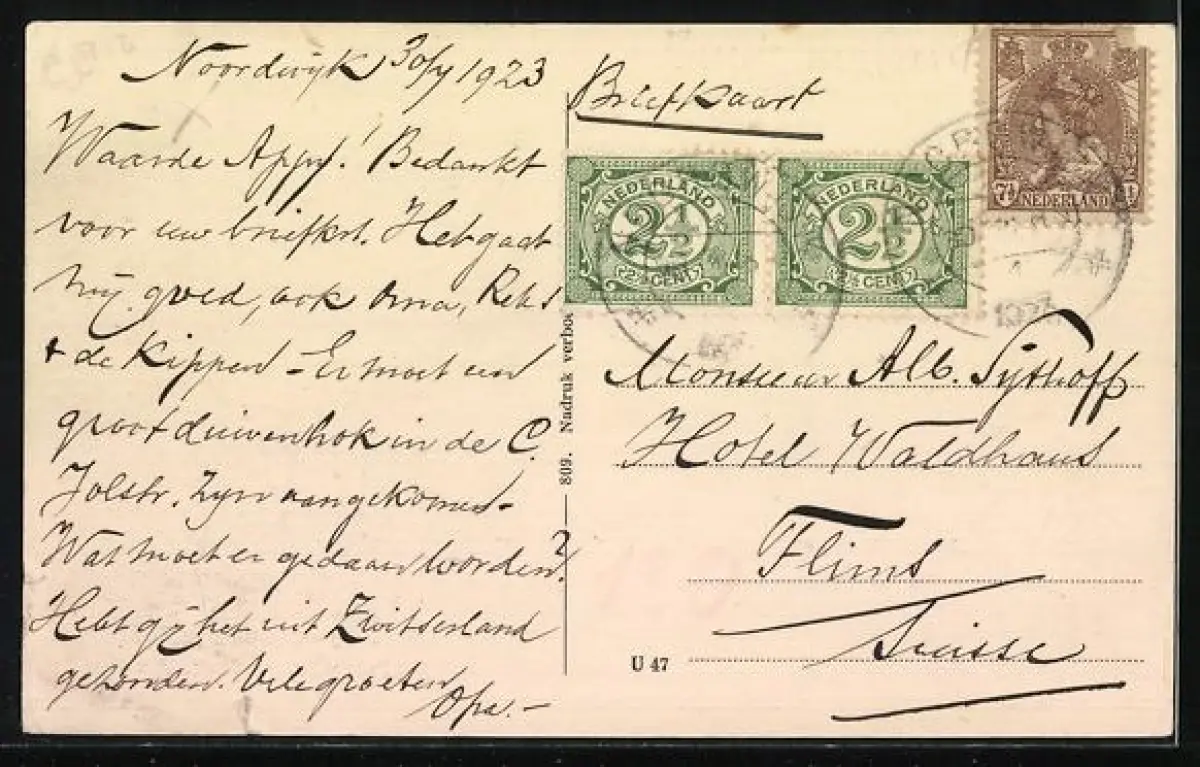 Noordwijk 30/7 1923
Waarde Appy! Bedankt
voor uw briefkrt. Het gaat
my goed, ook Oma,
+ de Kippen – Er moet een
groot duivenhok in de C.
Jolstr. zyn aangekomen –
Wat moet er gedaan worden?
Hebt gy het uit Zwitserland
gezonden. Vele groeten
Opa. –
Briefkaart
NEDERLAND
2½
2½ CENT
NEDERLAND
2½
2½ CENT
7½
NEDERLAND
1923
Monsieur Alb. Sythoff
Hotel Waldhaus
Flims
Suisse
809. Nadruk verboden
U 47